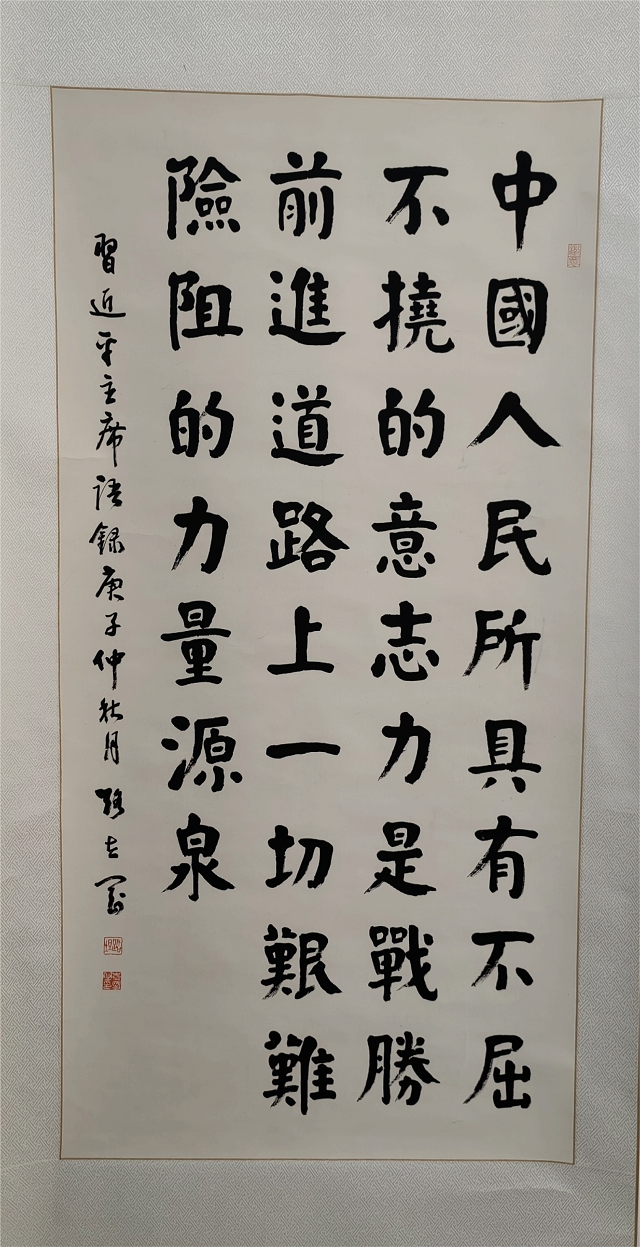 中國人民所具有不屈
不撓的意志力是戰勝
前進道路上一切艱難
險阻的力量源泉
習近平主席語錄庚子仲秋月